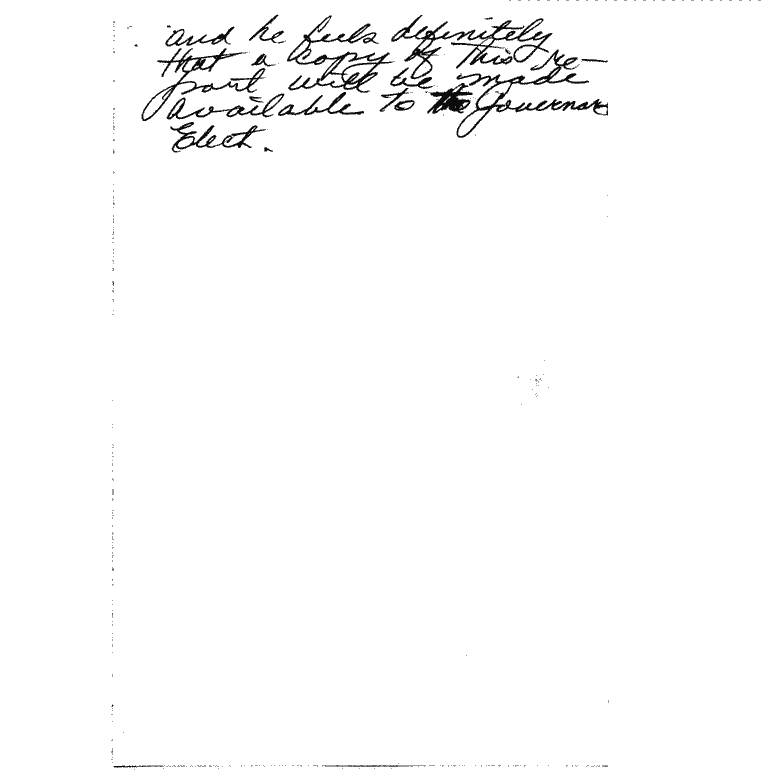 and he feels definitely
that a copy of this re-
port will be made
available to the Governor
Elect.